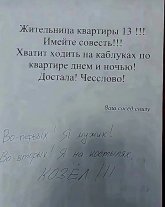 Жительница квартиры 13 !!!
Имейте совесть!!!
Хватит ходить на каблуках по
квартире днем и ночью!
Достала! Чесслово!
Ваш сосед снизу
Во-первых! Я мужик!
Во-вторых! Я на костылях,
КОЗЁЛ!!!